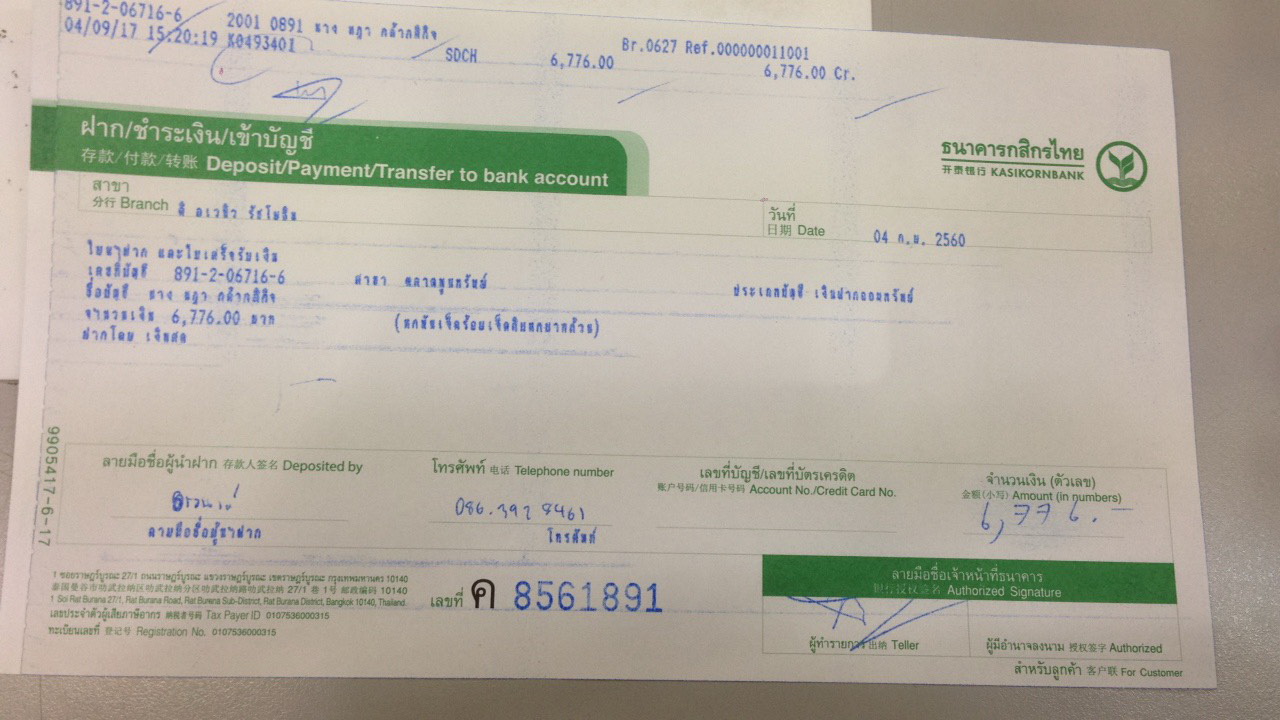 891-2-06716-6 2001 0891 นาง นฎา กล้ากสิกิจ Br.0627 Ref.000000011001
04/09/17 15:20:19 K0493401 SDCH 6,776.00 6,776.00 Cr.
ฝาก/ชำระเงิน/เข้าบัญชี
存款/付款/转账 Deposit/Payment/Transfer to bank account
ธนาคารกสิกรไทย
开泰银行 KASIKORNBANK
สาขา
分行 Branch ดิ อเวนิว รัชโยธิน
วันที่
日期 Date 04 ก.ย. 2560
ใบนำฝาก และใบเสร็จรับเงิน
เลขที่บัญชี 891-2-06716-6 สาขา ตลาดพูนทรัพย์ ประเภทบัญชี เงินฝากออมทรัพย์
ชื่อบัญชี นาง นฎา กล้ากสิกิจ
จำนวนเงิน 6,776.00 บาท (หกพันเจ็ดร้อยเจ็ดสิบหกบาทถ้วน)
ฝากโดย เงินสด
9905417-6-17
ลายมือชื่อผู้นำฝาก 存款人签名 Deposited by
โทรศัพท์ 电话 Telephone number
086.392 8461
เลขที่บัญชี/เลขที่บัตรเครดิต
账户号码/信用卡号码 Account No./Credit Card No.
จำนวนเงิน (ตัวเลข)
金额(小写) Amount (in numbers)
6,776.-
ลายมือชื่อผู้นำฝาก โทรศัพท์
1 ซอยราษฎร์บูรณะ 27/1 ถนนราษฎร์บูรณะ แขวงราษฎร์บูรณะ เขตราษฎร์บูรณะ กรุงเทพมหานคร 10140
泰国曼谷市叻武拉纳区叻武拉纳分区叻武拉纳路叻武拉纳 27/1 巷 1号 邮政编码 10140
1 Soi Rat Burana 27/1, Rat Burana Road, Rat Burana Sub-District, Rat Burana District, Bangkok 10140, Thailand
เลขประจำตัวผู้เสียภาษีอากร 纳税者号码 Tax Payer ID 0107536000315
ทะเบียนเลขที่ 登记号 Registration No. 0107536000315
เลขที่ ค 8561891
ลายมือชื่อเจ้าหน้าที่ธนาคาร
银行授权签名 Authorized Signature
ผู้ทำรายการ 出纳 Teller
ผู้มีอำนาจลงนาม 授权签字 Authorized
สำหรับลูกค้า 客户联 For Customer